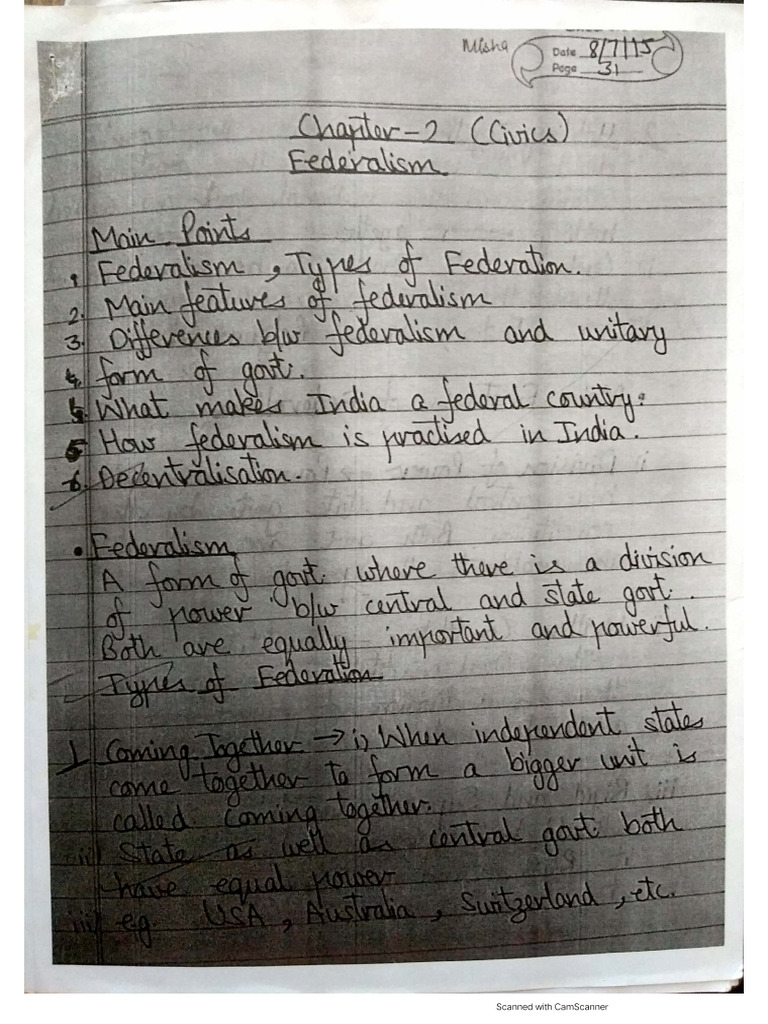 Misha
Date 8/7/15
Page 31
Chapter-2 (Civics)
Federalism
Main Points
1. Federalism, Types of Federation.
2. Main features of federalism
3. Differences b/w federalism and unitary
4. form of govt.
5. What makes India a federal country.
5 How federalism is practised in India.
6. Decentralisation.
• Federalism
A form of govt. where there is a division
of power b/w central and state govt.
Both are equally important and powerful.
Types of Federation
1 Coming Together → i) When independent states
come together to form a bigger unit is
called coming together.
ii) State as well as central govt both
have equal power
iii) eg. USA, Australia, Switzerland, etc.
Scanned with CamScanner